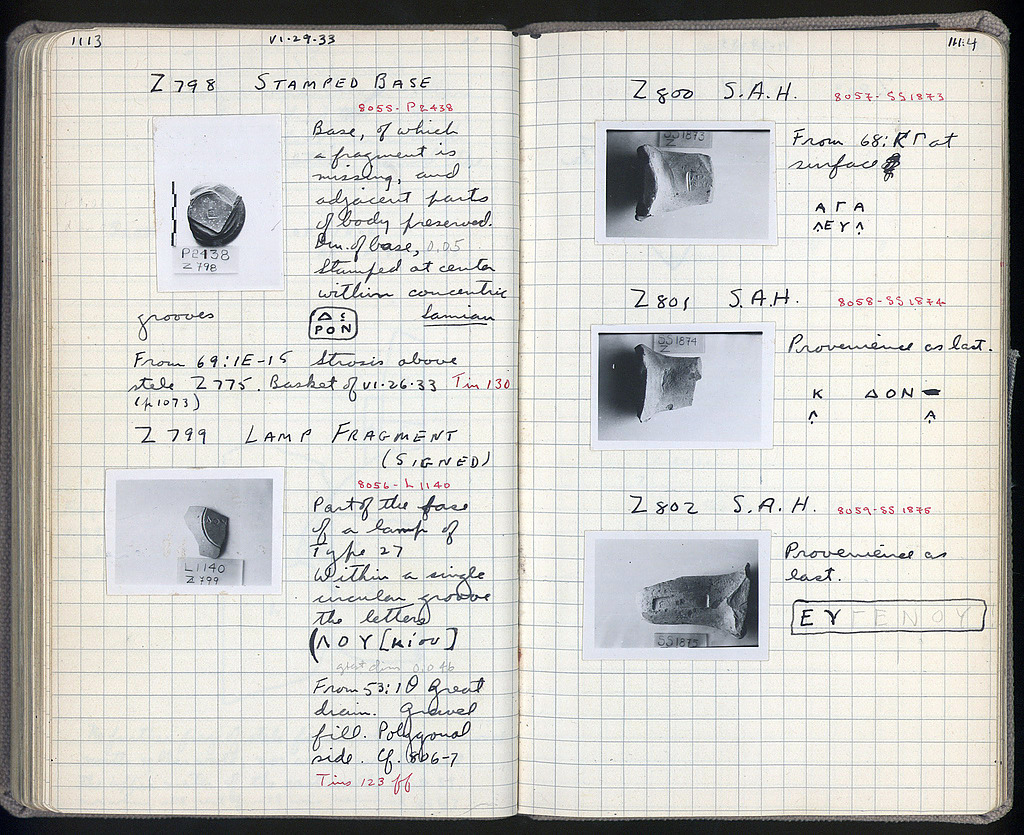 1113
VI·29·33
Z 798 STAMPED BASE
8055- P2438
Base, of which
a fragment is
missing, and
adjacent parts
of body preserved.
Dm. of base, 0.05
Stamped at center
within concentric
grooves
ΔΣ
ΡΟΝ
Samian
P2438
Z 798
From 69:ΙΕ-15 Strosis above
stele Z775. Basket of VI·26·33 Tin 130
(p1073)
Z 799 LAMP FRAGMENT
(SIGNED)
8056- L1140
Part of the base
of a lamp of
Type 27
Within a single
circular groove
the letters
ΛΟΥ[κίου]
great dim 0.046
L1140
Z 799
From 53:ΙΘ Great
drain. Gravel
fill. Polygonal
side. Cf. 806-7
Tins 123 ff
1114
Z 800 S.A.H. 8057- SS1873
SS1873
Z
From 68:ΚΓ at
surface
Α Γ Α
ΛΕΥΛ
Z 801 S.A.H. 8058-SS1874
SS1874
Z
Provenience as last.
Κ ΔΟΝ
Λ Α
Z 802 S.A.H. 8059-SS1875
SS1875
Provenience as
last.
ΕΥΓΕΝΟΥ